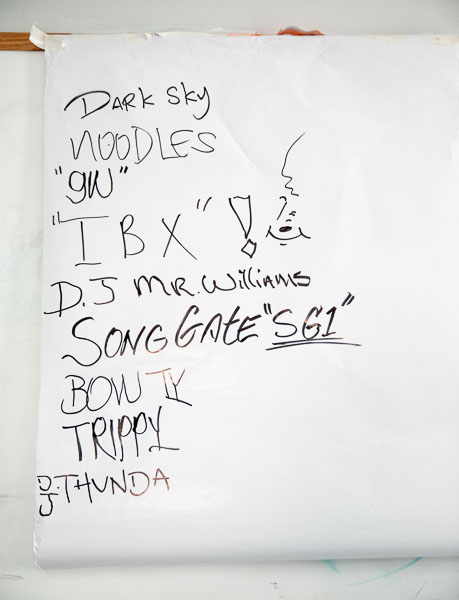 DARK SKY
NOODLES
"9W"
"IBX"!
D.J MR. Williams
SONG GATE "SG1"
BOW TY
TRIPPY
DJ THUNDA